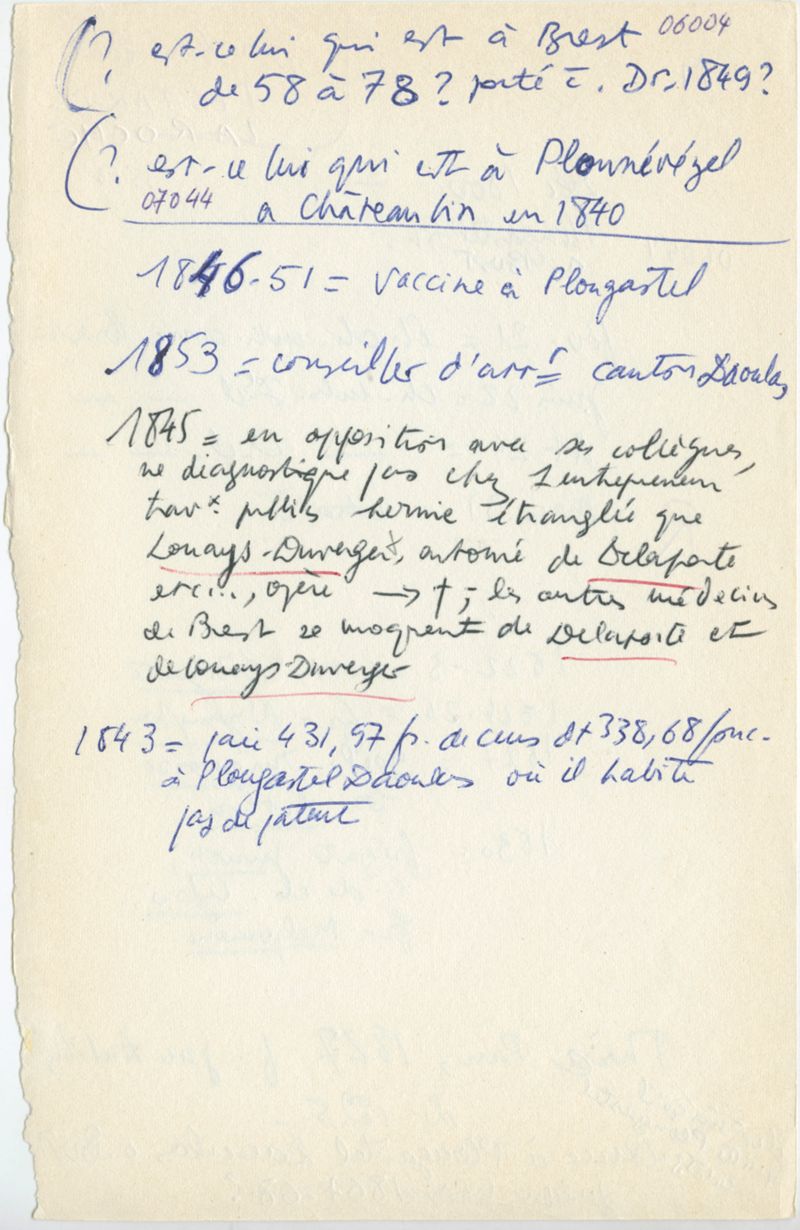 06004
(? est-ce lui qui est à Brest
de 58 à 78 ? porté c. Dr. 1849 ?
(? est-ce lui qui est à Plounévézel
07044 a Châteaulin en 1840
1846-51 = vaccine à Plougastel
1853 = conseiller d'arrt canton Daoulas
1845 = en opposition avec ses collègues,
ne diagnostique pas chez 1 entrepreneur
travx. publics hernie étranglée que
Louays-Duverger, entouré de Delaporte
etc..., opère → † ; les autres médecins
de Brest se moquent de Delaporte et
de Louays-Duverger
1843 = paie 431,97 fr. de cens dt 338,68 fonc.
à Plougastel Daoulas où il habite
pas de patente